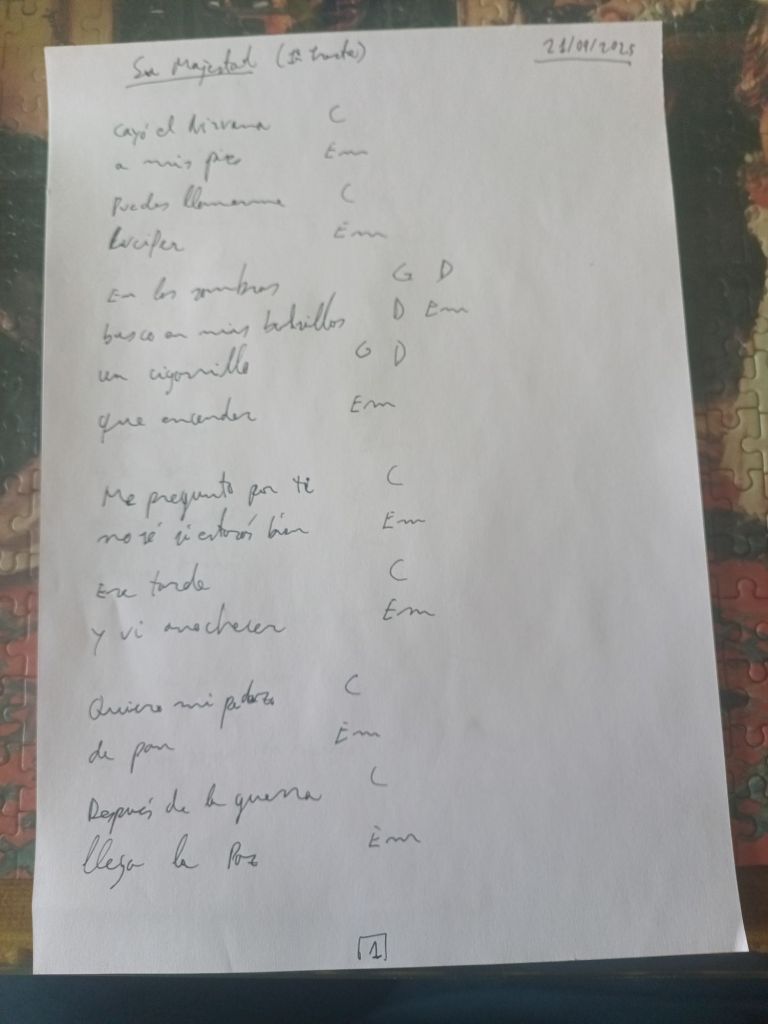 Su Majestad (1ª
21/09/2025
Cayó el Nirvana C
a mis pies Em
Puedes llamarme C
Lucifer Em
En las sombras G D
busco en mis bolsillos D Em
un cigarrillo G D
que encender Em
Me pregunto por ti C
no sé si estarás bien Em
Era tarde C
y vi anochecer Em
Quiero mi pedazo C
de pan Em
Después de la guerra C
llega la Paz Em
1